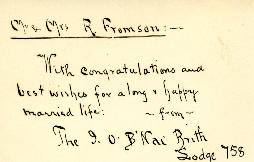 Mr & Mrs R Fromson:—
With congratulations and
best wishes for a long & happy
married life:   — from —
The I. O. B'Nai Brith
Lodge 758